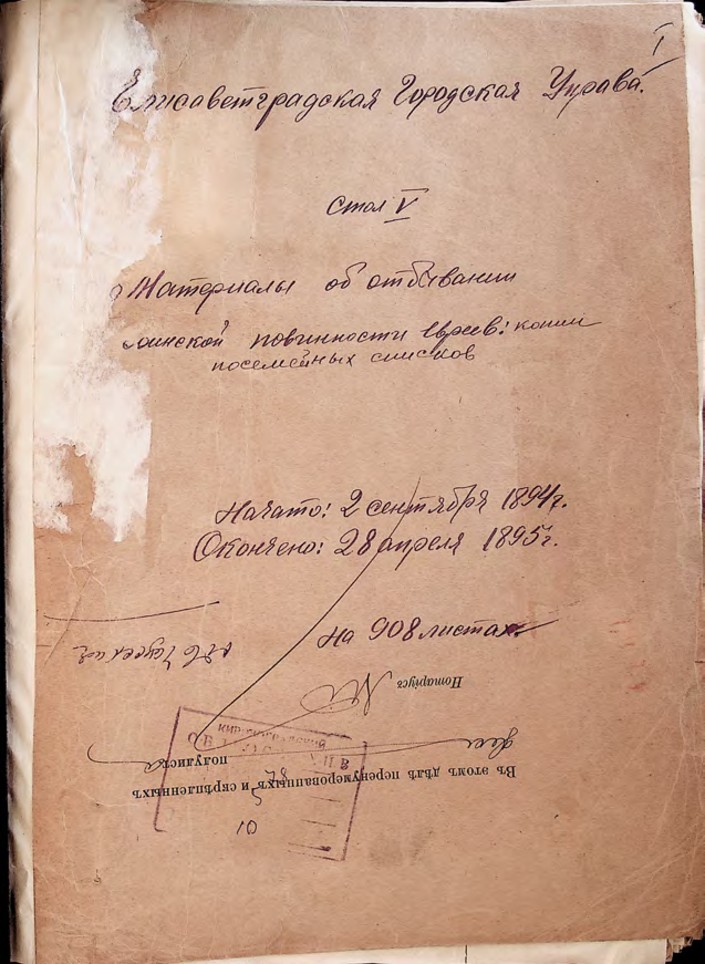 I
Елисаветградская Городская Управа.
Стол V
Материалы об отбывании
воинской повинности евреев: копии
посемейных списков
Начато: 2 сентября 1894 г.
Окончено: 28 апреля 1895 г.
На 908 листах.
Нотаріусъ
полулиста
Въ этомъ дѣлѣ перенумерованныхъ и скрѣпленныхъ